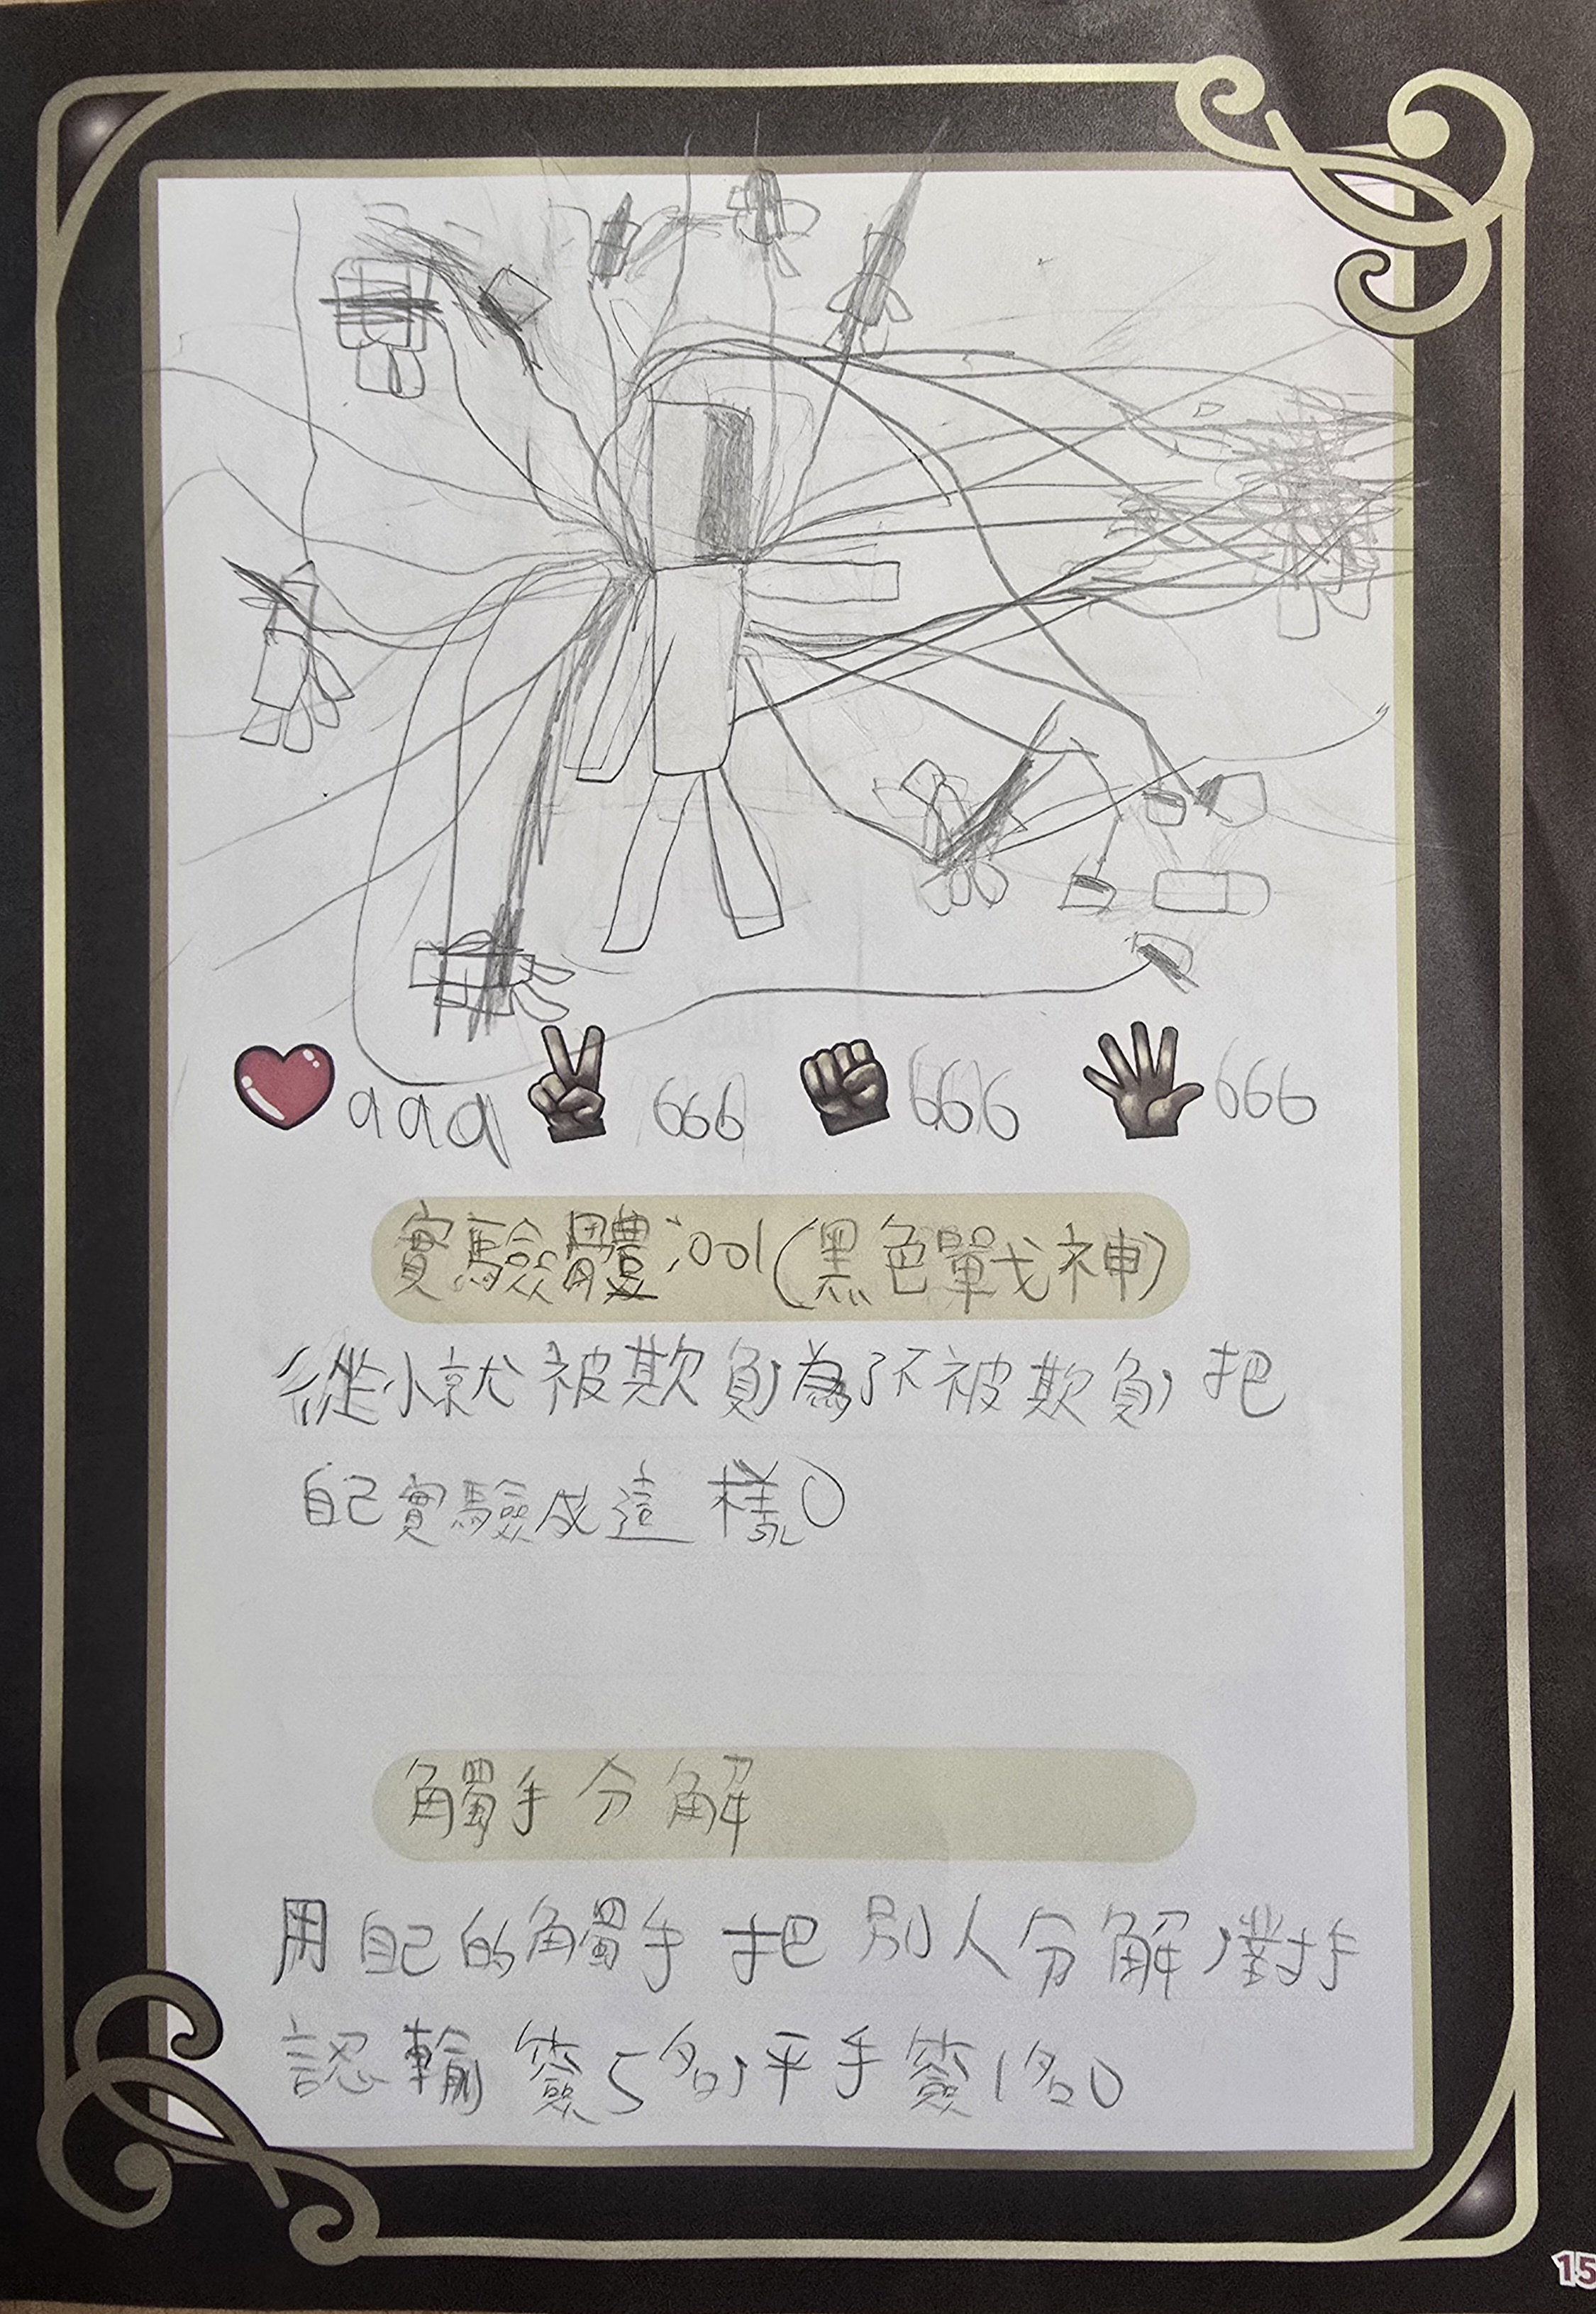 999 666 666 666
實驗體:001(黑色戰神)
從小就被欺負為了不被欺負,把
自己實驗成這樣。
觸手分解
用自己的觸手把別人分解,對手
認輸簽5名,平手簽1名。
15